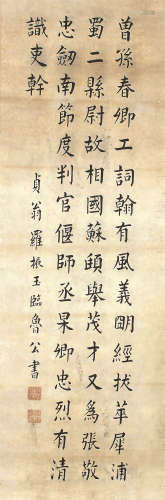 曾孫春卿工詞翰有風義明經拔萃犀浦
蜀二縣尉故相國蘇頲舉茂才又為張敬
忠劒南節度判官偃師丞杲卿忠烈有清
識吏幹
貞翁羅振玉臨魯公書